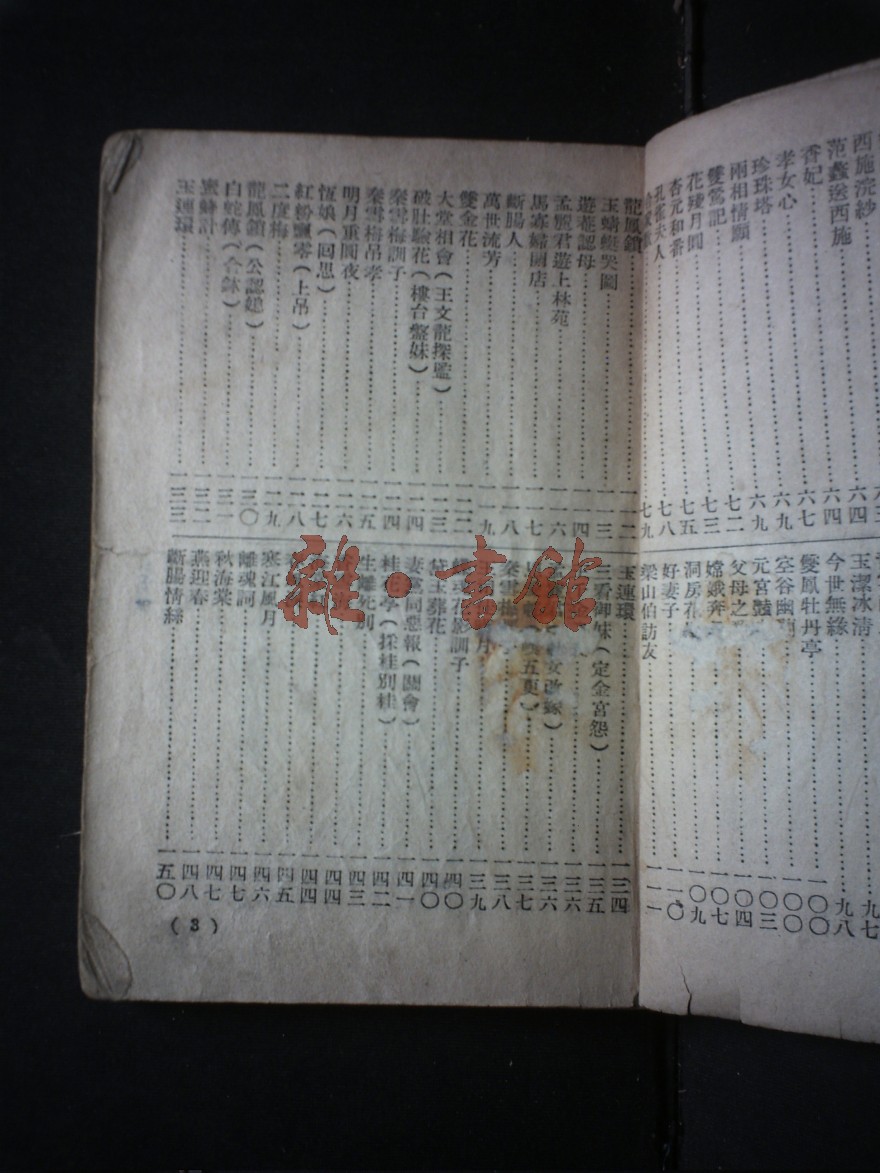 西施浣紗 六四
范蠡送西施 六四
香妃 六七
孝女心 六九
珍珠塔 六九
兩相情願 七二
雙鶯記 七三
花殘月圓 七五
杏元和番 七八
孔雀夫人 七九
玉潔冰清 九七
今世無緣 九八
雙鳳牡丹亭 一〇〇
空谷幽 一〇〇
元宮豔 一〇三
父母之 一〇四
嫦娥奔 一〇七
洞房花 一〇九
好妻子 一一〇
梁山伯訪友 一一一
龍鳳鎖 一一二
玉蜻蜓哭圖 一一三
遊菴認母 一一四
孟麗君遊上林苑 一一六
馬寡婦開店 一一七
斷腸人 一一八
萬世流芳 一一九
雙金花 一二二
大堂相會(王文龍探監) 一二三
破肚驗花(樓台盤妹) 一二四
秦雪梅訓子 一二四
秦雪梅吊孝 一二五
明月重圓夜 一二六
恆娘(回思) 一二七
紅粉飄零(上吊) 一二八
二度梅 一二九
龍鳳鎖(公認媳) 一三〇
白蛇傳(合缽) 一三一
蜜蜂計 一三二
玉連環 一三三
玉連環 一三四
三看御妹(定金宮怨) 一三五
一三六
五更) 一三七
秦雪梅 一三八
一三九
花影訓子 一四〇
黛玉葬花 一四〇
妻 同惡報(鬧會) 一四一
桂 孝(採桂別桂) 一四二
生離死別 一四三
一四四
一四四
一四五
寒江風月 一四六
離魂詞 一四七
秋海棠 一四七
燕迎春 一四八
斷腸情絲 一五〇
(3)
雜·書館